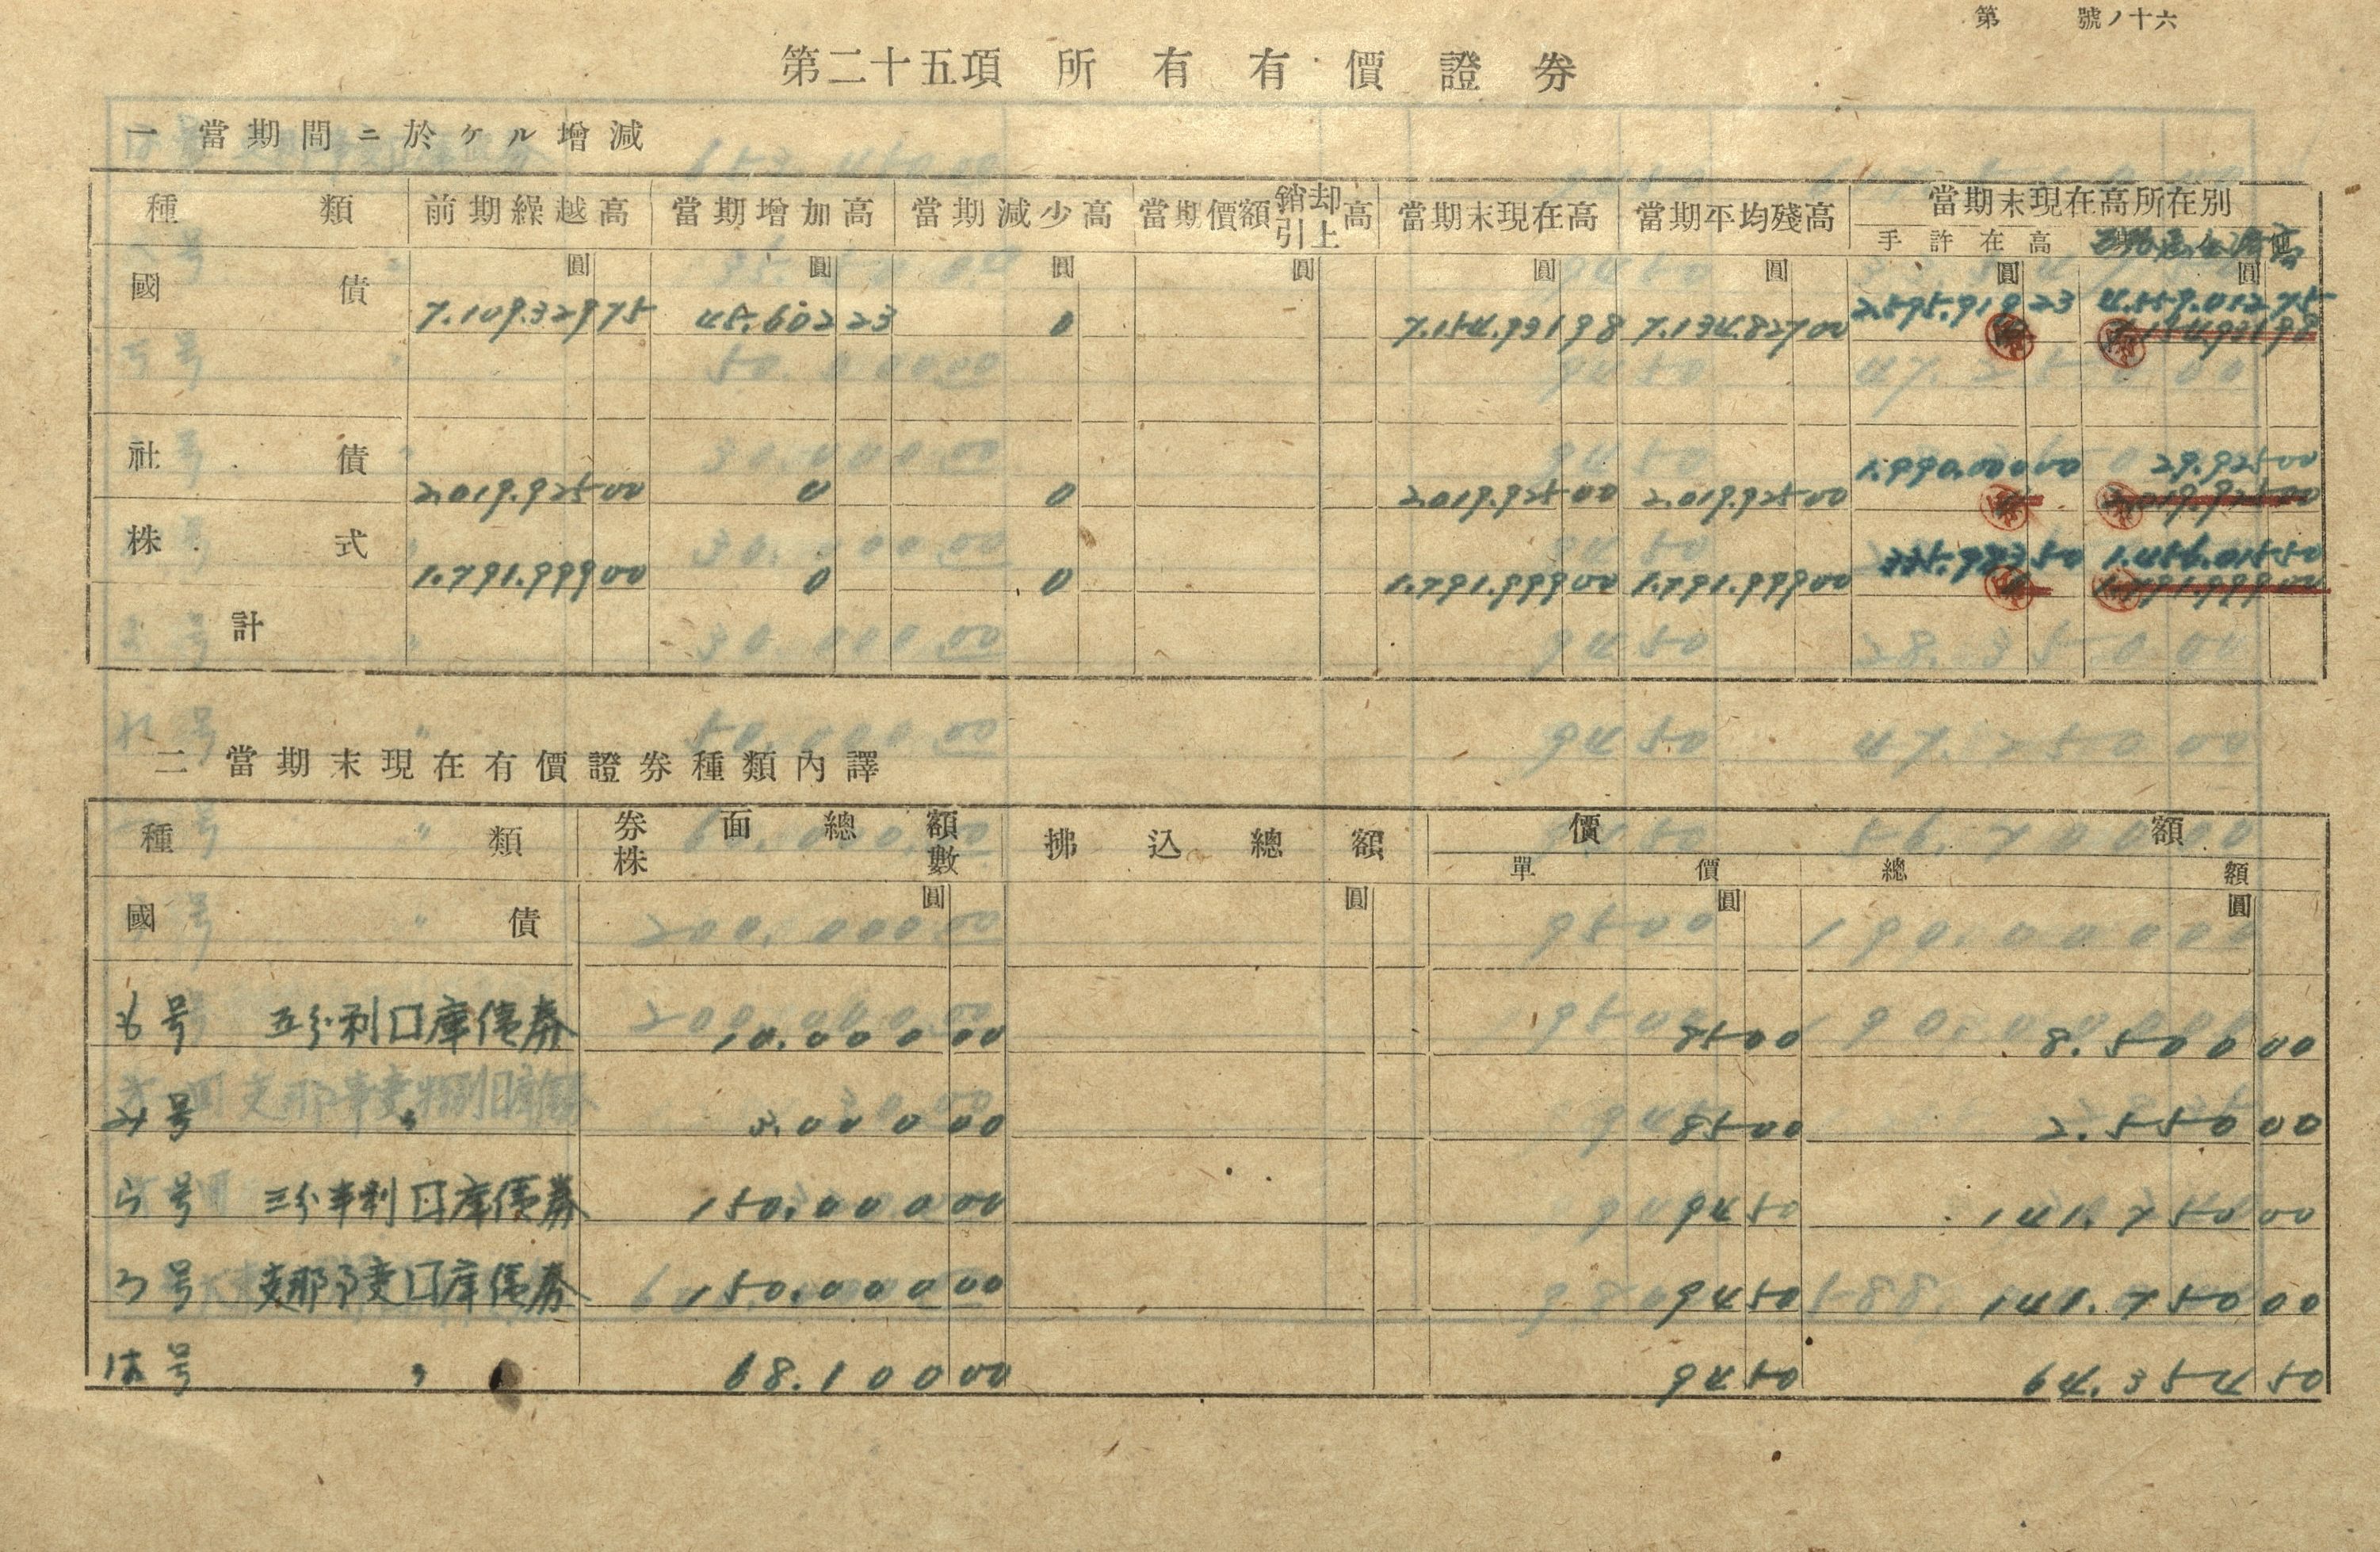 第 號ノ十六
第二十五項 所有有價證券
一 當期間ニ於ケル增減
種類 前期繰越高 當期增加高 當期減少高 當期價額銷却引上高 當期末現在高 當期平均殘高 當期末現在高所在別
手許在高
國債 圓 圓 圓 圓 圓 圓 圓 圓
2.595.918 23 4.559.012 75
7.109.329 75 45.602 23 0 7.154.931 98 7.134.827 00 7.154.931 98
社債 1.990.000 00 29.925 00
2.019.925 00 0 0 2.019.925 00 2.019.925 00 2.019.925 00
株式 335.983 50 1.456.015 50
1.791.999 00 0 0 1.791.999 00 1.791.999 00 1.791.999 00
計
二 當期末現在有價證券種類內譯
種類 券面總額 株數 拂込總額 價額
單價 總額
國債 圓 圓 圓 圓
号 五分利囗庫債券 10.000 00 85 00 8.500 00
号 〃 3.000 00 85 00 2.550 00
う号 三分半利囗庫債券 150.000 00 94 50 141.750 00
号 支那事変囗庫債券 150.000 00 94 50 141.750 00
は号 〃 68.100 00 94 50 64.354 50